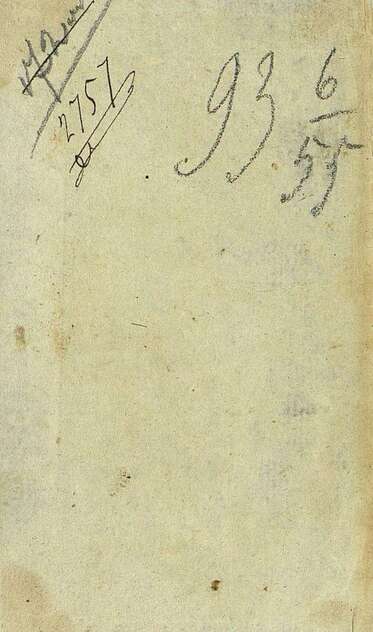 2757
93 6
55